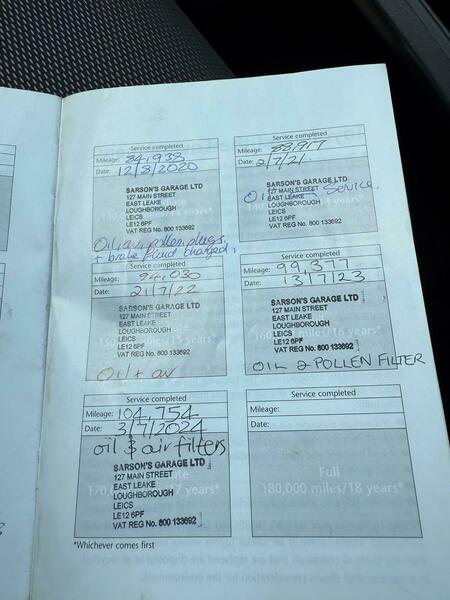 Service completed
Mileage: 84,938
Date: 12/8/2020
SARSON'S GARAGE LTD
127 MAIN STREET
EAST LEAKE
LOUGHBOROUGH
LEICS
LE12 6PF
VAT REG No. 800 133692
Oil, air, pollen, plugs,
+ brake fluid changed,
Service completed
Mileage: 88,917
Date: 2/7/21.
SARSON'S GARAGE LTD
127 MAIN STREET
EAST LEAKE
LOUGHBOROUGH
LEICS
LE12 6PF
VAT REG No. 800 133692
Oil Service.
Service completed
Mileage: 94,030
Date: 21/7/22.
SARSON'S GARAGE LTD
127 MAIN STREET
EAST LEAKE
LOUGHBOROUGH
LEICS
LE12 6PF
VAT REG No. 800 133692
Oil + air
Service completed
Mileage: 99,377
Date: 13/7/23
SARSON'S GARAGE LTD
127 MAIN STREET
EAST LEAKE
LOUGHBOROUGH
LEICS
LE12 6PF
VAT REG No. 800 133692
OIL & POLLEN FILTER
Service completed
Mileage: 104,754
Date: 3/7/2024
oil & air filters
SARSON'S GARAGE LTD
127 MAIN STREET
EAST LEAKE
LOUGHBOROUGH
LEICS
LE12 6PF
VAT REG No. 800 133692
Service completed
Mileage:
Date:
Full
180,000 miles/18 years*
*Whichever comes first